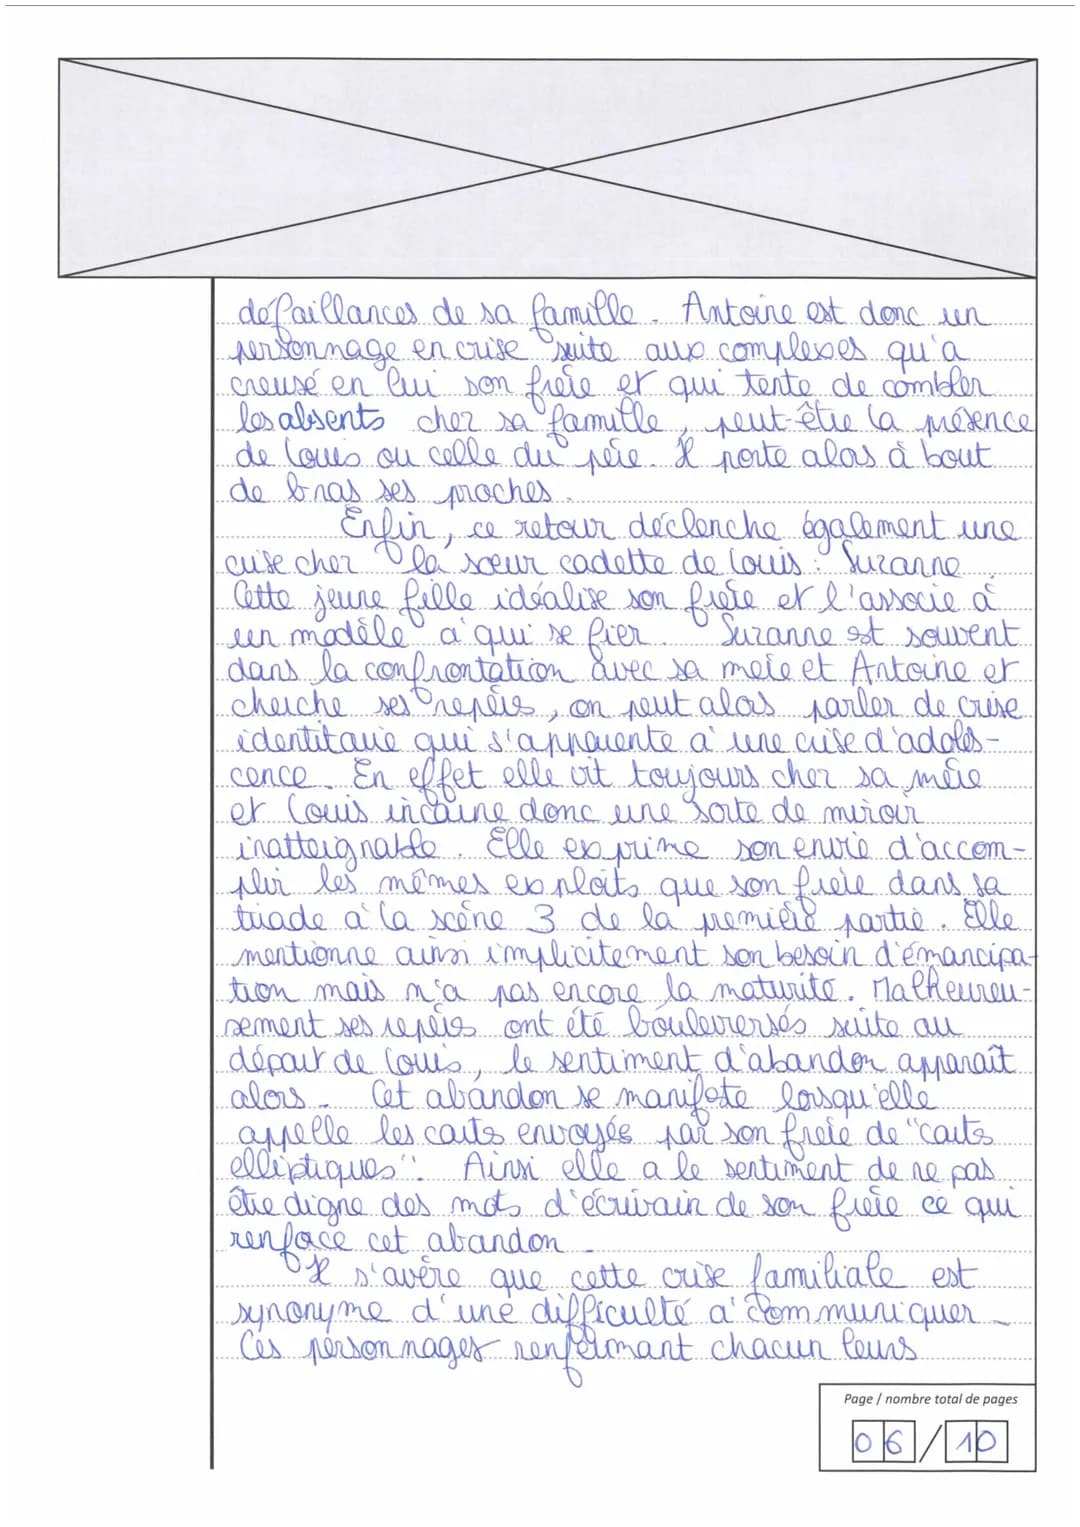 défaillances de sa famille. Antoine est donc un
personnage en crise suite aux complexes qu'a
creusé en lui son frère et qui tente de combler
les absents chez sa famille, peut-être la présence
de Louis ou celle du père. Il porte alors à bout
de bras ses proches.
Enfin, ce retour déclenche également une
crise chez la sœur cadette de Louis : Suzanne.
Cette jeune fille idéalise son frère et l'associe à
un modèle à qui se fier. Suzanne est souvent
dans la confrontation avec sa mère et Antoine et
cherche ses repères, on peut alors parler de crise
identitaire qui s'apparente à une crise d'adoles-
cence. En effet elle vit toujours chez sa mère
et Louis incarne donc une sorte de miroir
inatteignable. Elle exprime son envie d'accom-
plir les mêmes exploits que son frère dans sa
tirade à la scène 3 de la première partie. Elle
mentionne ainsi implicitement son besoin d'émancipa-
tion mais n'a pas encore la maturité. Malheureu-
sement ses repères ont été bouleversés suite au
départ de Louis, le sentiment d'abandon apparaît
alors. Cet abandon se manifeste lorsqu'elle
appelle les cartes envoyées par son frère de "cartes
elliptiques". Ainsi elle a le sentiment de ne pas
être digne des mots d'écrivain de son frère ce qui
renforce cet abandon.
Il s'avère que cette crise familiale est
synonyme d'une difficulté à communiquer.
Ces personnages renfermant chacun leurs
Page / nombre total de pages
06 / 10